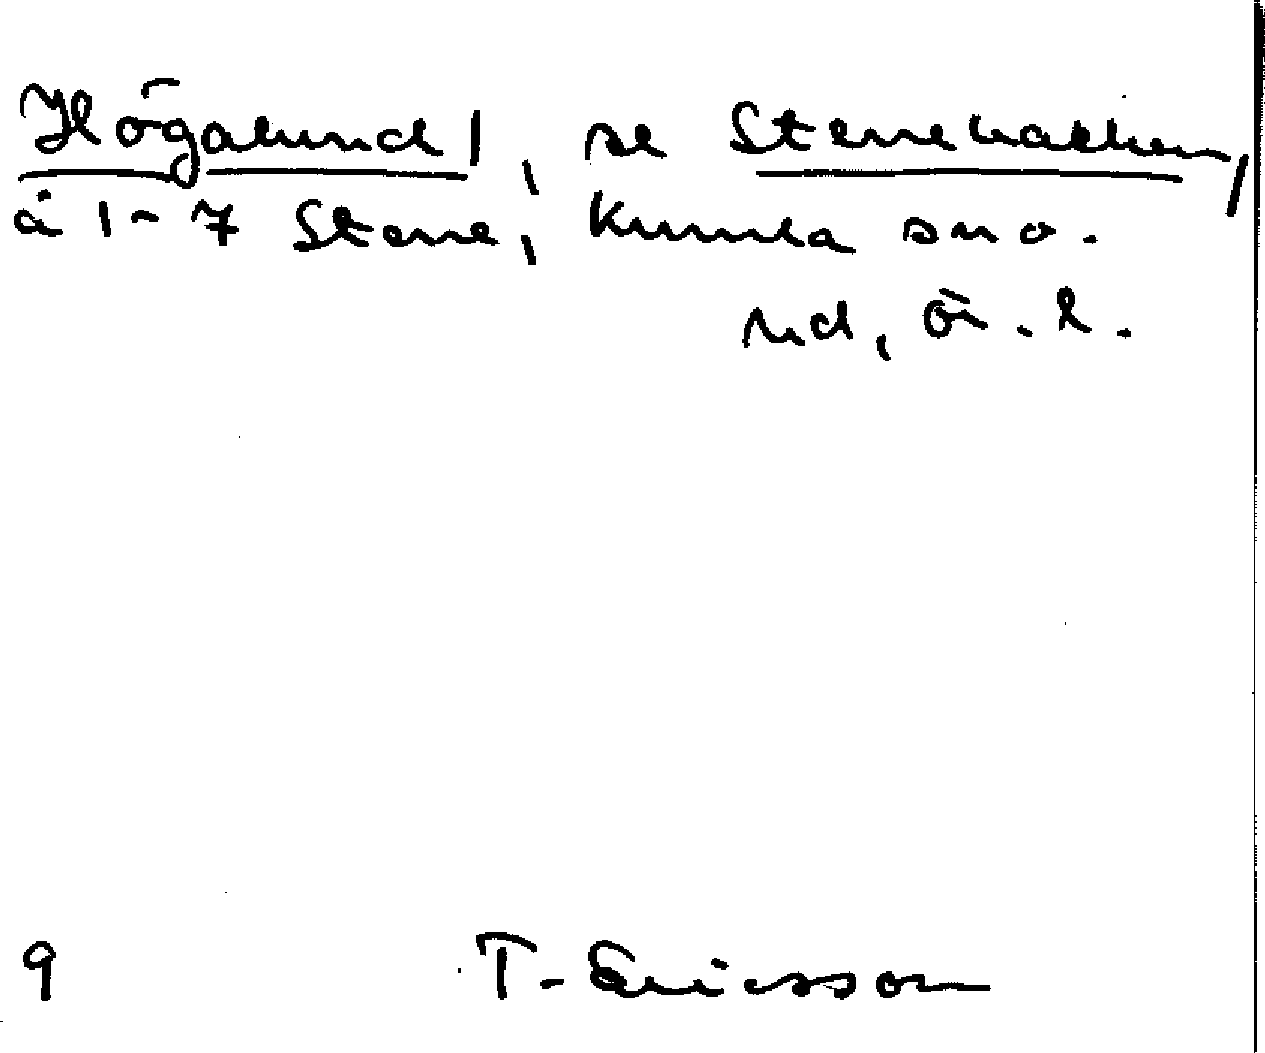 Högalund, se Stenebacken,
å 1-7 Stene, Kumla sn o.
hd, ö. l.
9 T. Ericsson